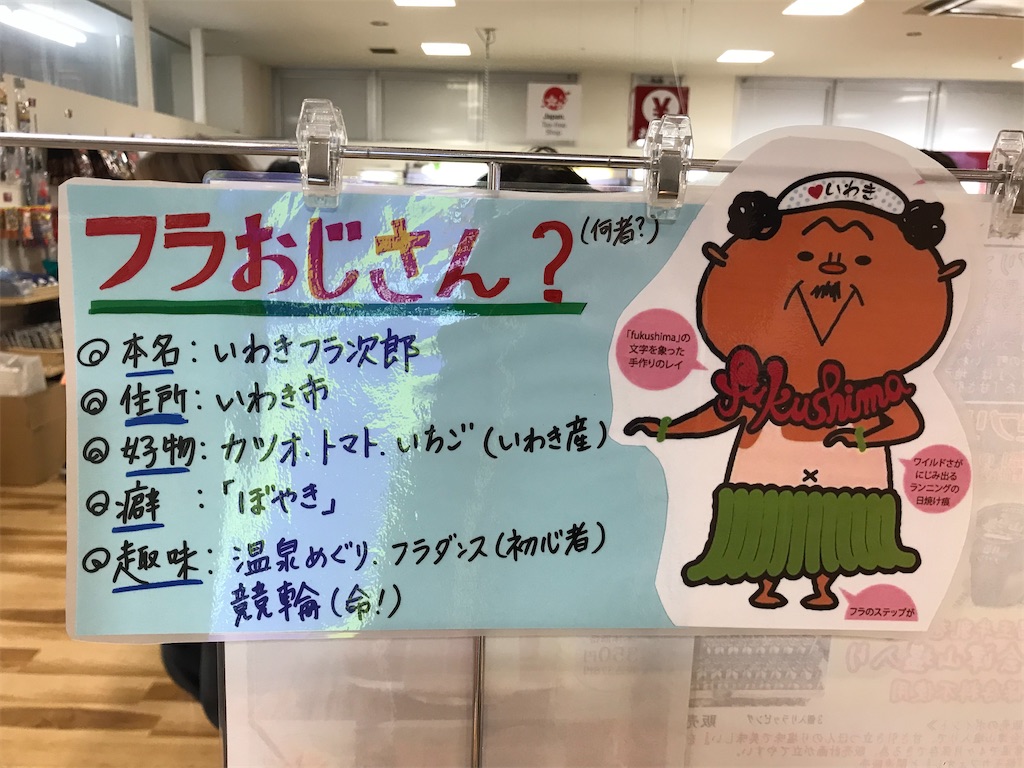 Japan.
Tax-free
Shop
¥
フラおじさん?(何者?)
◎本名:いわきフラ次郎
◎住所:いわき市
◎好物:カツオ.トマト.いちご(いわき産)
◎癖:「ぼやき」
◎趣味:温泉めぐり.フラダンス(初心者)
競輪(命!)
♥いわき
「fukushima」の
文字を象った
手作りのレイ
fukushima
ワイルドさが
にじみ出る
ランニングの
日焼け痕
フラのステップが